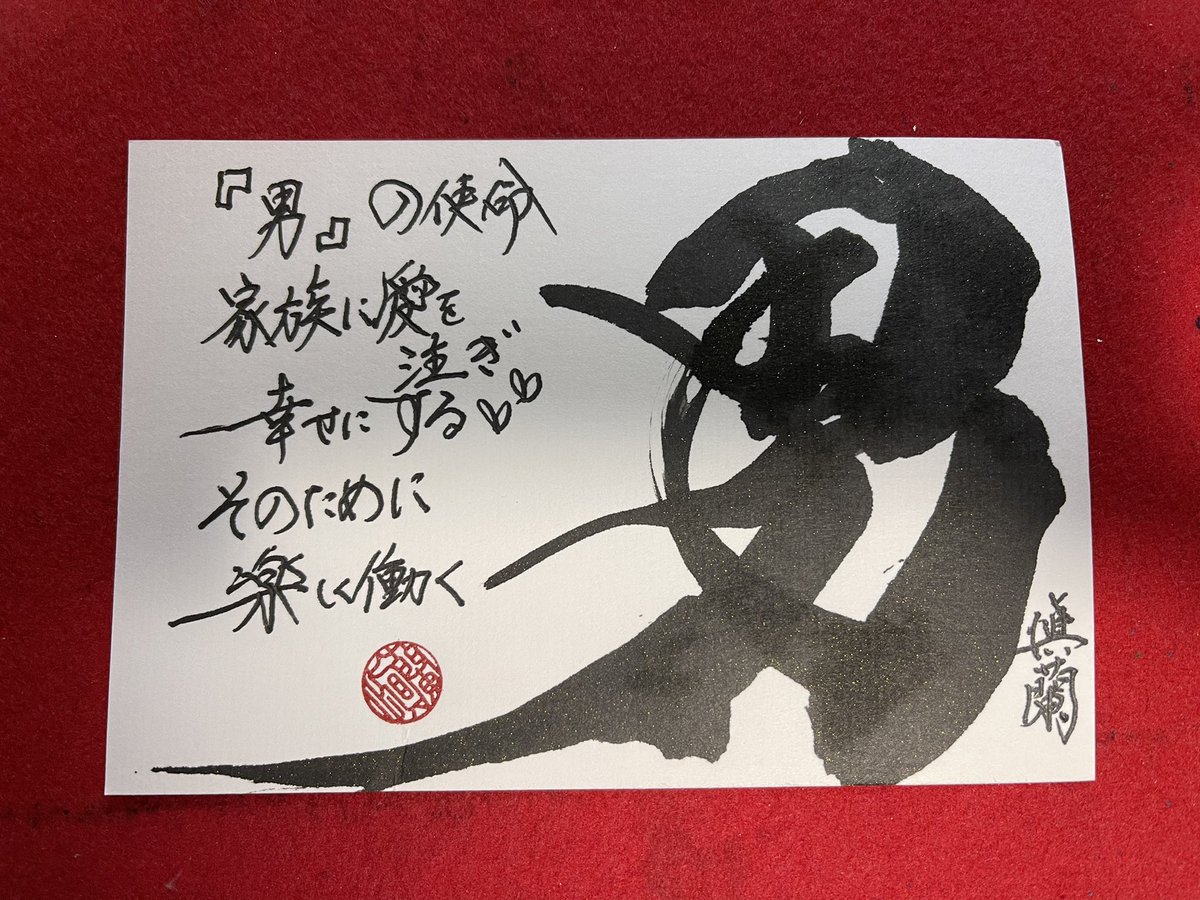 『男』の使命
家族に愛を
注ぎ
幸せにする
そのために
楽しく働く
男